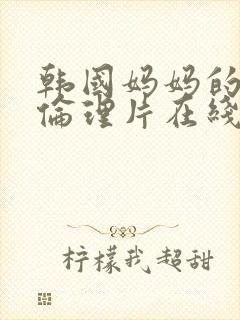 韩国妈妈的
倫理片在綫
柠檬我超甜